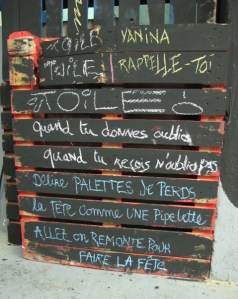 TOILE VANINA
TOILE RAPPELLE-TOI
TOILE !
quand tu donnes oublie
quand tu reçois n'oublie pas
Délire PALETTES Je PERDS
la TÊTE comme UNE Pipelette
ALLEZ on REMONTE POUR
FAIRE LA FÊTE